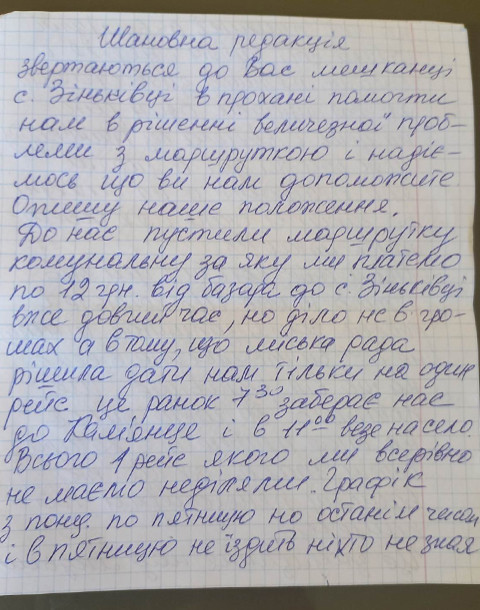 Шановна редакція
звертаються до Вас мешканці
с. Зіньківці в прохані помогти
нам в рішенні величезної проб-
леми з маршруткою і надіє-
мось що ви нам допоможите
Опишу наше положення.
До нас пустили маршрутку
комунальну за яку ми платемо
по 12 грн. від базара до с. Зіньківці
вже довгий час, но діло не в гро-
шах а в тому, що міська рада
рішила дати нам тільки на один
рейс це ранок 7³⁰ заберає нас
до Камянце і в 11⁰⁰ везе насело.
Всього 1 рейс якого ми всерівно
не маємо неділями. Графік
з понд. по пятницю но останім часом
і в пятницю не їздить ніхто не зная